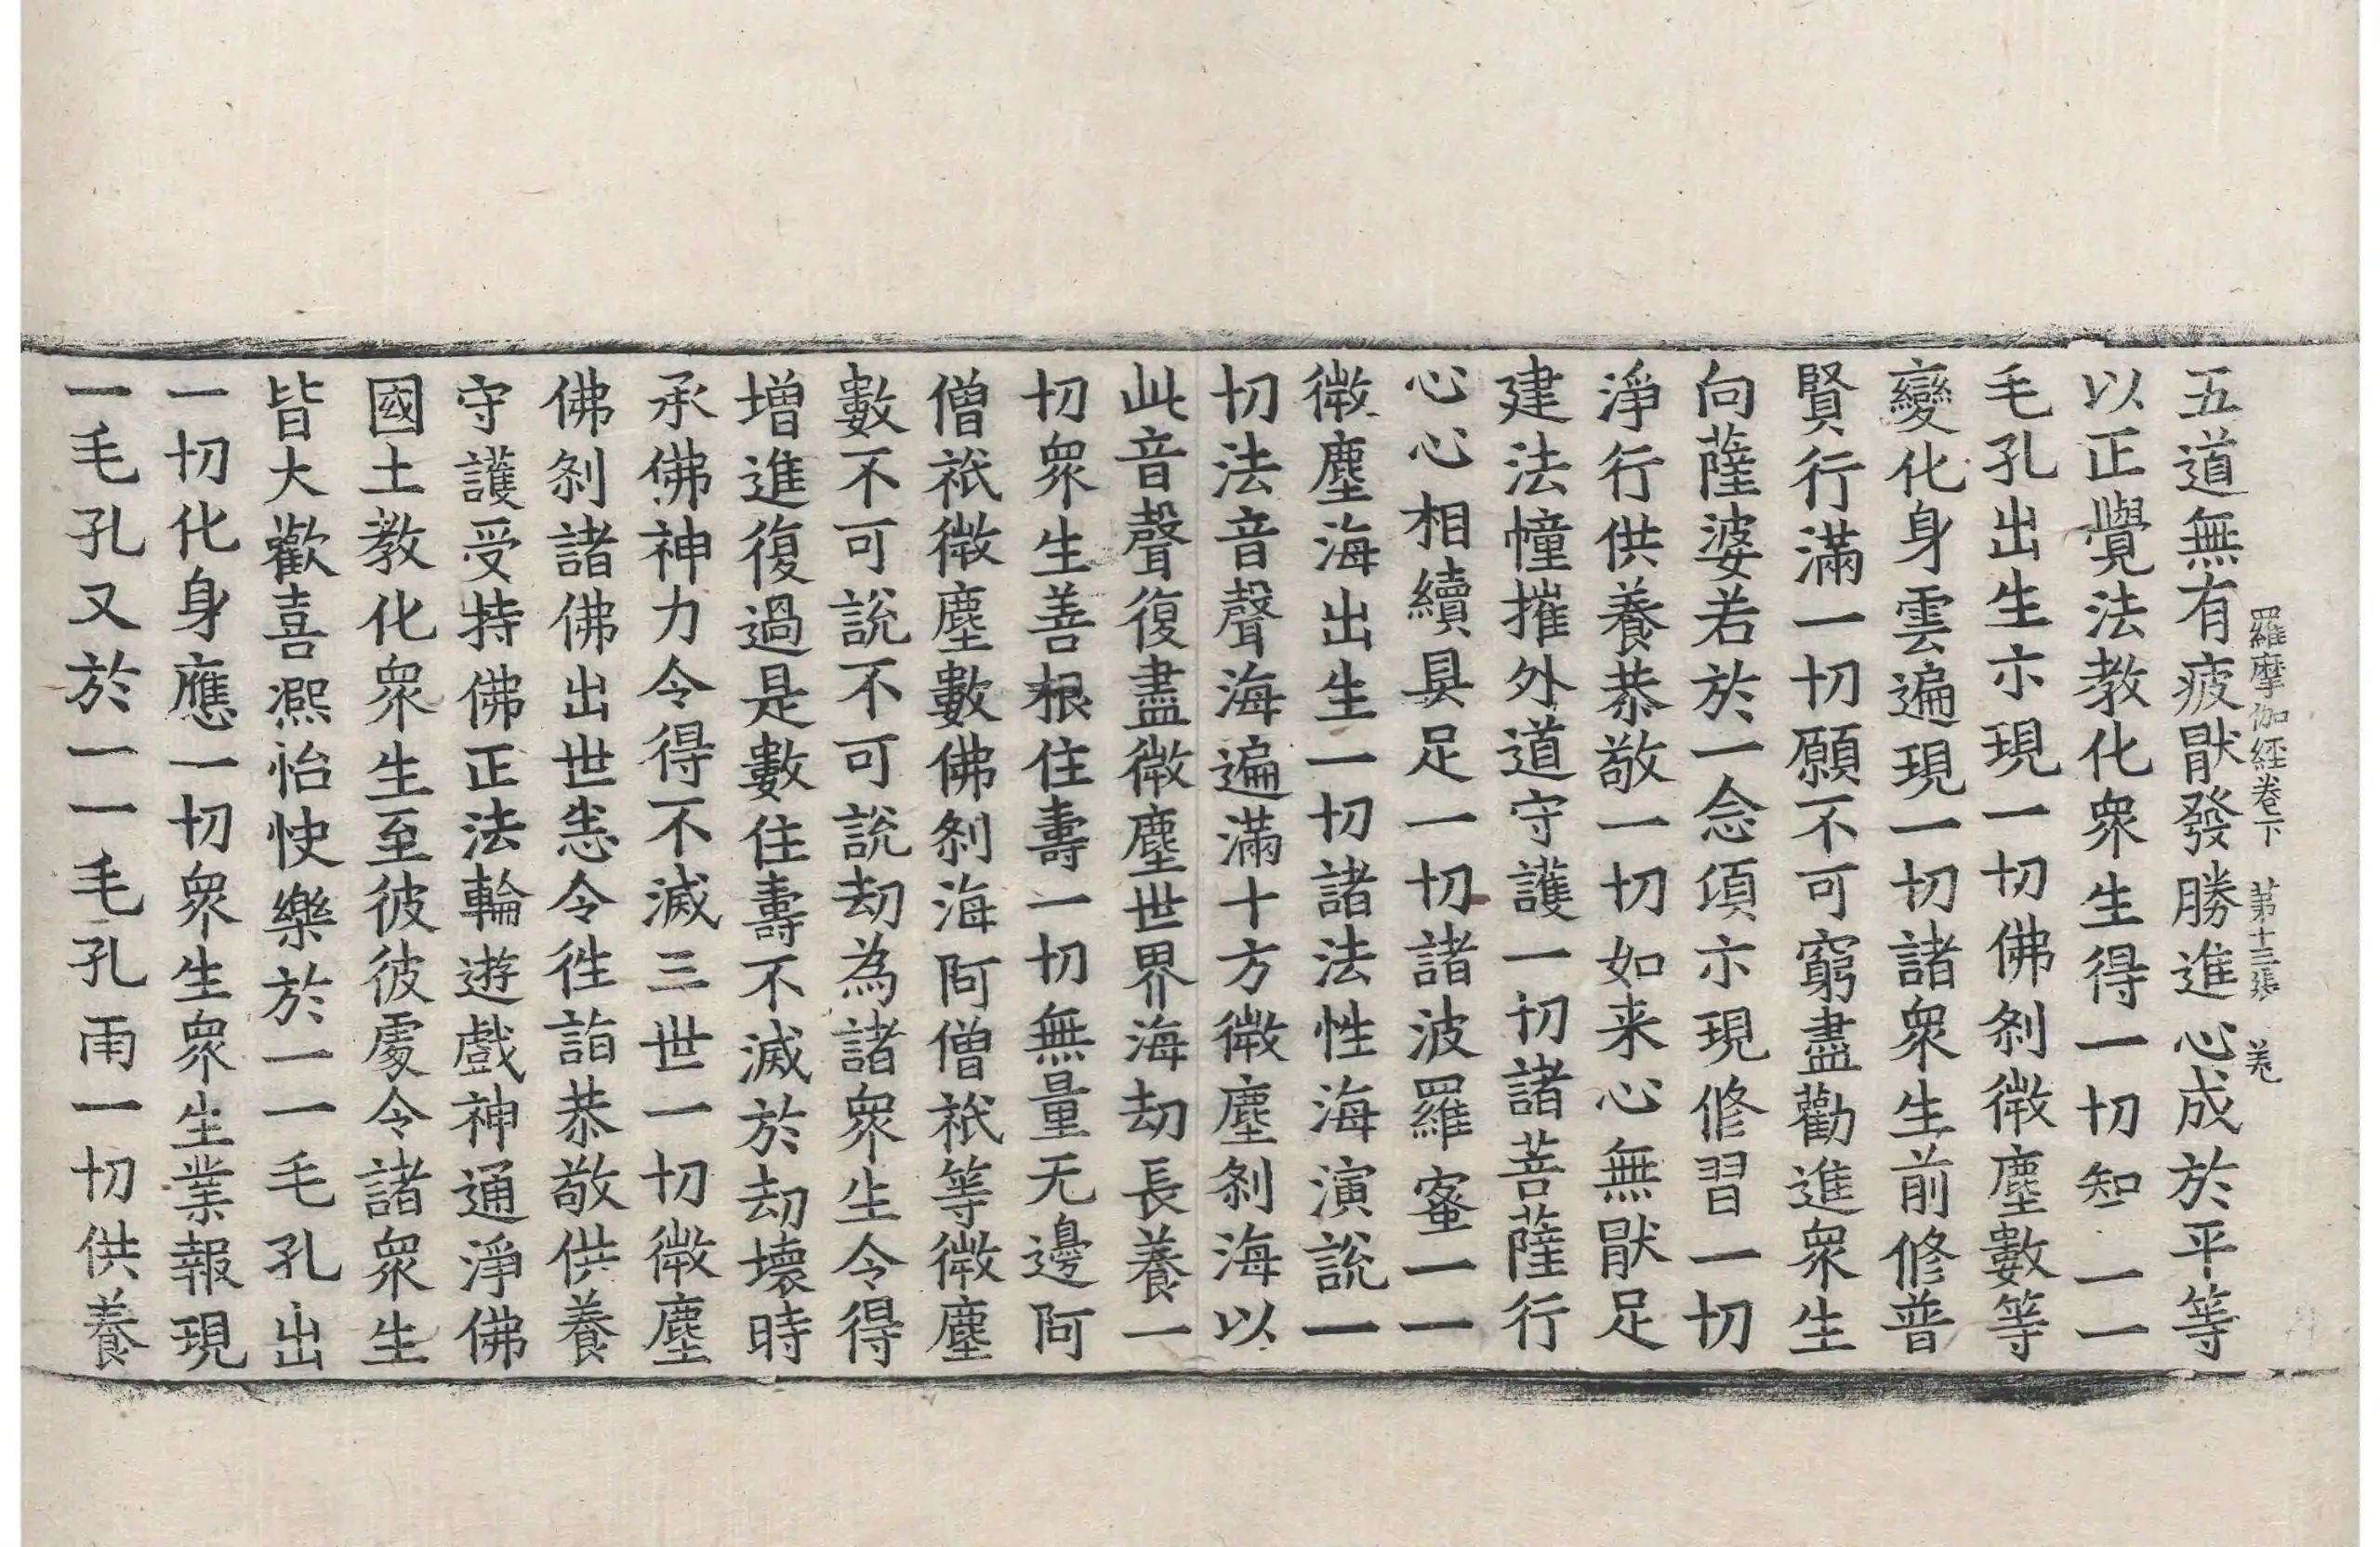 羅摩伽經卷下　第十三張　羙
五道無有疲猒發勝進心成於平等
以正覺法教化衆生得一切知一一
毛孔出生示現一切佛刹微塵數等
變化身雲遍現一切諸衆生前修普
賢行滿一切願不可窮盡勸進衆生
向薩婆若於一念頃示現修習一切
淨行供養恭敬一切如来心無猒足
建法幢摧外道守護一切諸菩薩行
心心相續具足一切諸波羅蜜一一
微塵海出生一切諸法性海演說一
切法音聲海遍滿十方微塵刹海以
此音聲復盡微塵世界海劫長養一
切衆生善根住壽一切無量无邊阿
僧祇微塵數佛刹海阿僧祇等微塵
數不可說不可說劫為諸衆生令得
增進復過是數住壽不滅於劫壞時
承佛神力令得不滅三世一切微塵
佛刹諸佛出世悉令徃詣恭敬供養
守護受持佛正法輪遊戲神通淨佛
國土教化衆生至彼彼處令諸衆生
皆大歡喜凞怡快樂於一一毛孔出
一切化身應一切衆生衆生業報現
一毛孔又於一一毛孔雨一切供養